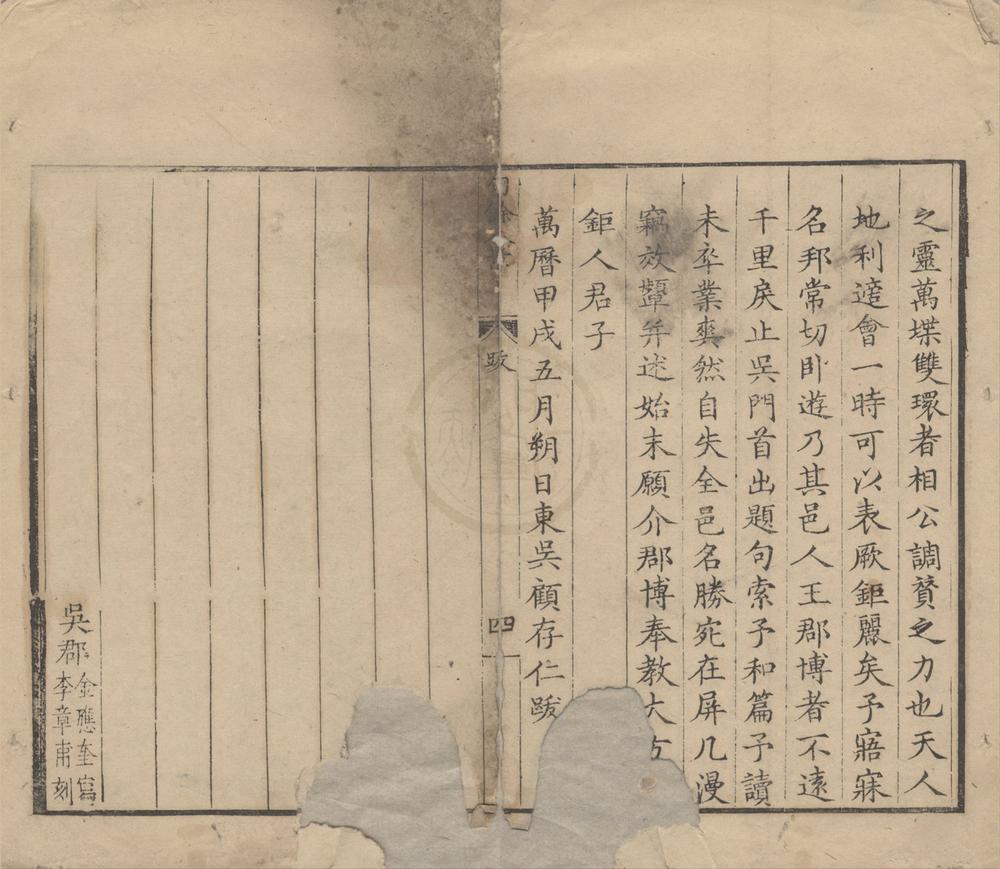 之靈萬堞雙環者相公調賛之力也天人
地利適會一時可以表厥鉅麗矣予寤寐
名邦常切卧遊乃其邑人王郡博者不遠
千里戾止吳門首出題句索予和篇予讀
未卒業爽然自失全邑名勝宛在屏几漫
竊效顰并述始末願介郡博奉教大方
鉅人君子
萬曆甲戌五月朔日東吳顧存仁跋
跋
四
吳郡
金應奎寫
李章甫刻